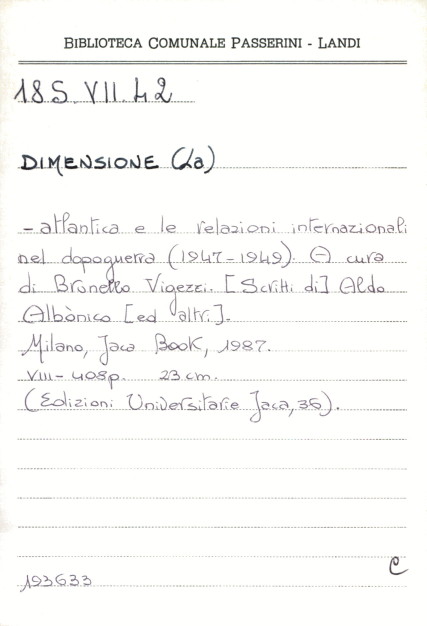 BIBLIOTECA COMUNALE PASSERINI - LANDI
18S.VII.42
DIMENSIONE (La)
- atlantica e le relazioni internazionali
nel dopoguerra (1947-1949). A cura
di Brunello Vigezzi. [Scritti di] Aldo
Albònico [ed altri].
Milano, Jaca Book, 1987.
VIII-408p. 23 cm.
(Edizioni Universitarie Jaca, 36).
C
193633